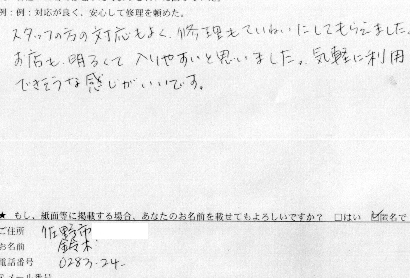 例：例：対応が良く、安心して修理を頼めた。
スタッフの方の対応もよく、修理もていねいにしてもらえました。
お店も、明るくて入りやすいと思いました。気軽に利用
できそうな感じがいいです。
★ もし、紙面等に掲載する場合、あなたのお名前を載せてもよろしいですか？ □はい ☑匿名で
ご住所 佐野市
お名前 鈴木
電話番号 0283-24-
メール番号